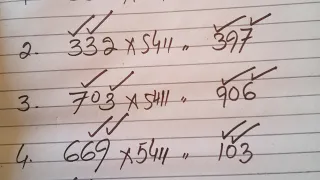 2. 332 x 5411 " 397
3. 703 x 5411 " 906
4. 669 x 5411 " 103